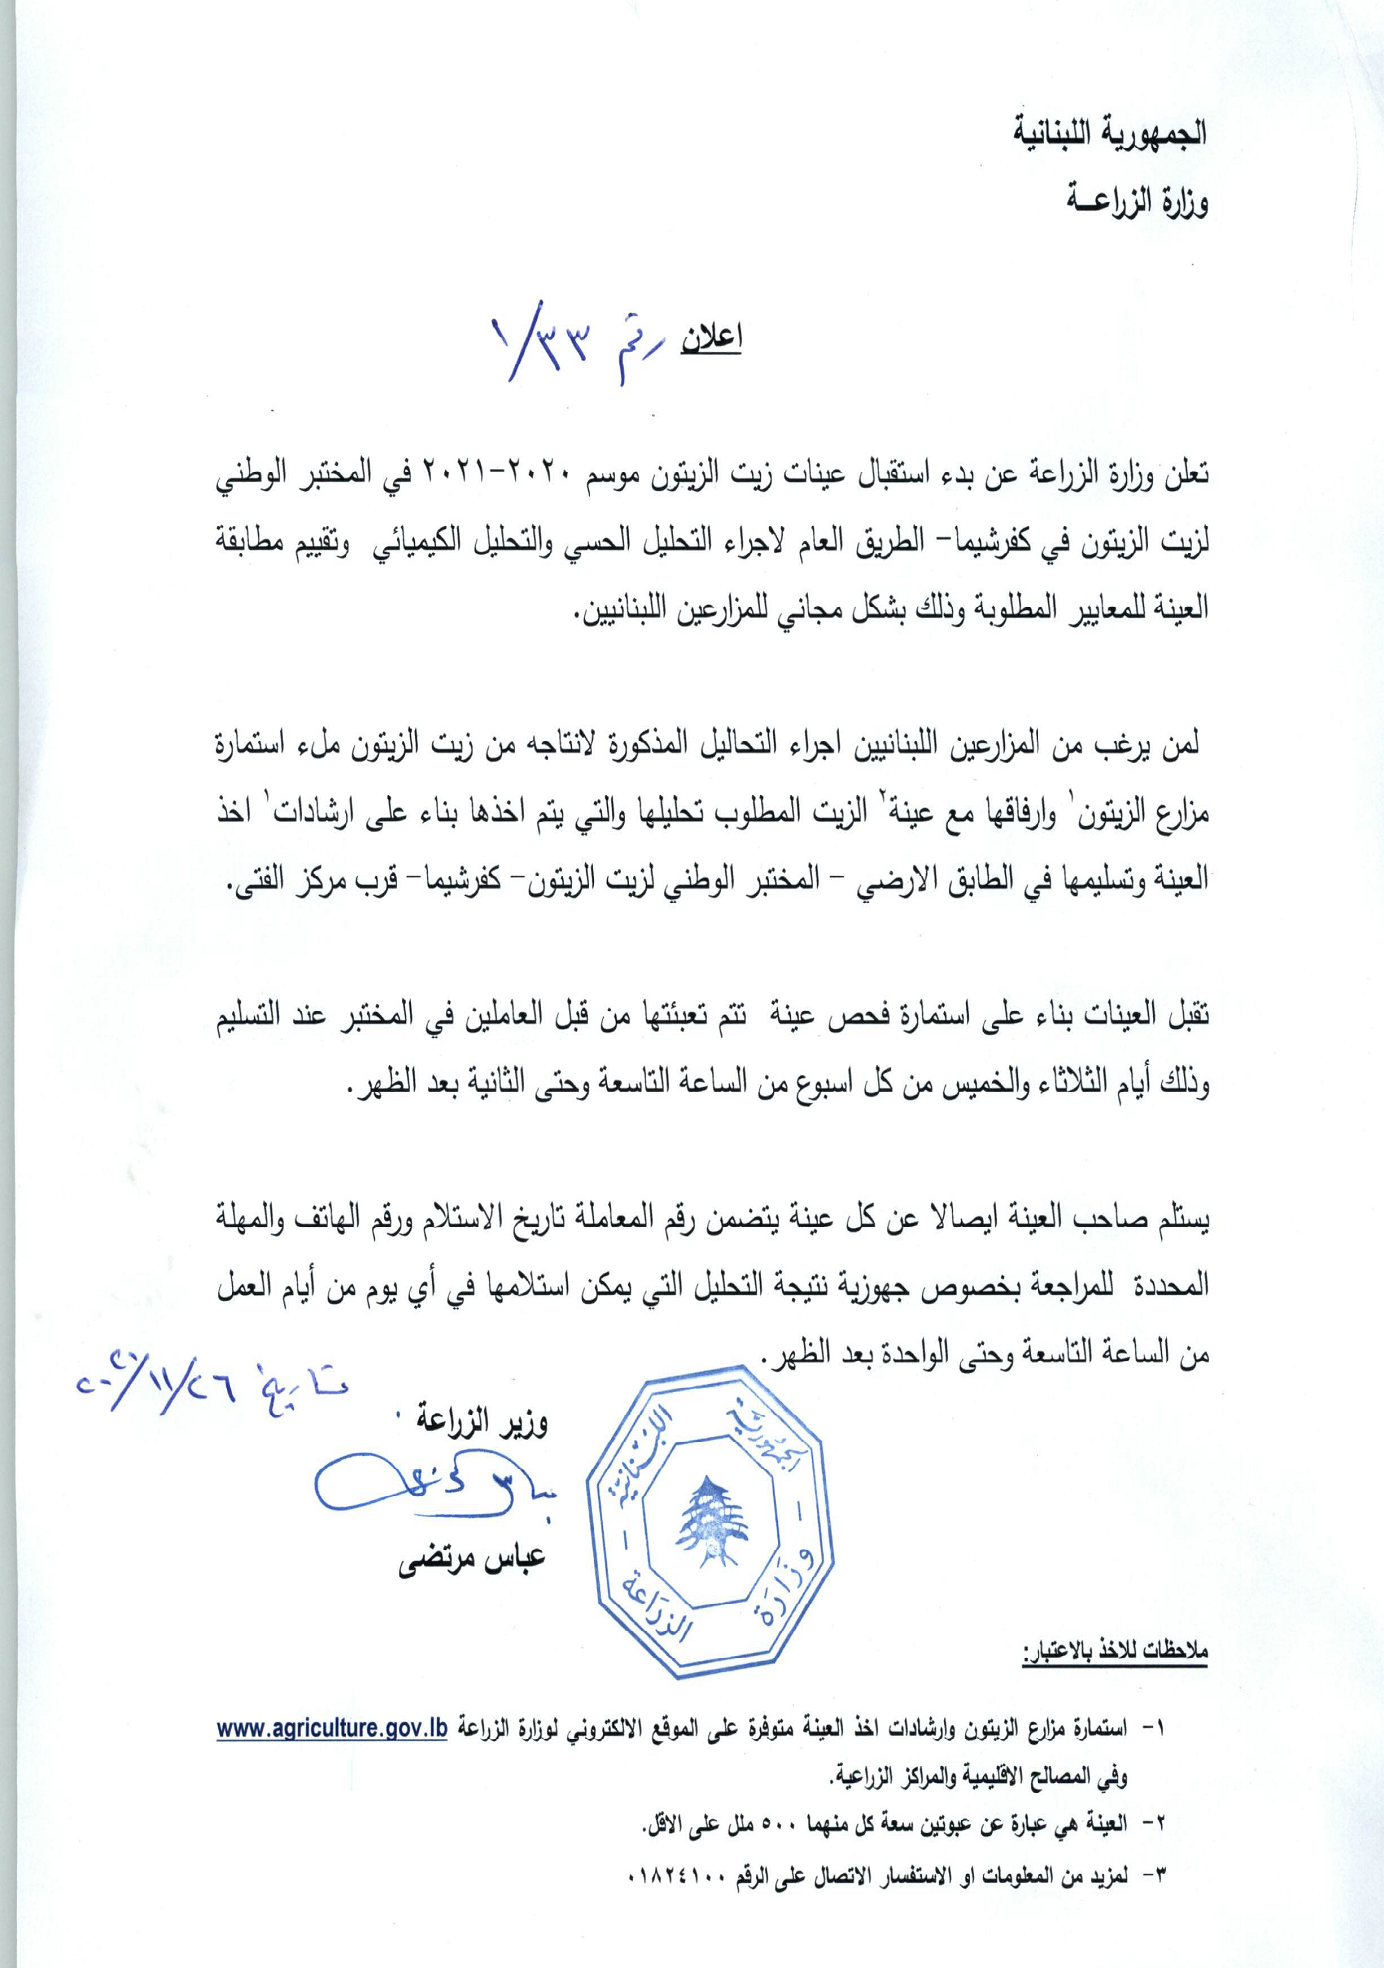 الجمهورية اللبنانية
وزارة الزراعـة
اعلان رقم ٣٣/١
تعلن وزارة الزراعة عن بدء استقبال عينات زيت الزيتون موسم ٢٠٢٠-٢٠٢١ في المختبر الوطني
لزيت الزيتون في كفرشيما- الطريق العام لاجراء التحليل الحسي والتحليل الكيميائي وتقييم مطابقة
العينة للمعايير المطلوبة وذلك بشكل مجاني للمزارعين اللبنانيين.
لمن يرغب من المزارعين اللبنانيين اجراء التحاليل المذكورة لانتاجه من زيت الزيتون ملء استمارة
مزارع الزيتون١ وارفاقها مع عينة٢ الزيت المطلوب تحليلها والتي يتم اخذها بناء على ارشادات١ اخذ
العينة وتسليمها في الطابق الارضي - المختبر الوطني لزيت الزيتون- كفرشيما- قرب مركز الفتى.
تقبل العينات بناء على استمارة فحص عينة تتم تعبئتها من قبل العاملين في المختبر عند التسليم
وذلك أيام الثلاثاء والخميس من كل اسبوع من الساعة التاسعة وحتى الثانية بعد الظهر.
يستلم صاحب العينة ايصالا عن كل عينة يتضمن رقم المعاملة تاريخ الاستلام ورقم الهاتف والمهلة
المحددة للمراجعة بخصوص جهوزية نتيجة التحليل التي يمكن استلامها في أي يوم من أيام العمل
من الساعة التاسعة وحتى الواحدة بعد الظهر.
تاريخ ٢٦/١١/٢٠٢٠
وزير الزراعة
عباس مرتضى
الجمهورية اللبنانية - وزارة الزراعة -
ملاحظات للاخذ بالاعتبار:
١- استمارة مزارع الزيتون وارشادات اخذ العينة متوفرة على الموقع الالكتروني لوزارة الزراعة www.agriculture.gov.lb
وفي المصالح الاقليمية والمراكز الزراعية.
٢- العينة هي عبارة عن عبوتين سعة كل منهما ٥٠٠ ملل على الاقل.
٣- لمزيد من المعلومات او الاستفسار الاتصال على الرقم ٠١٨٢٤١٠٠